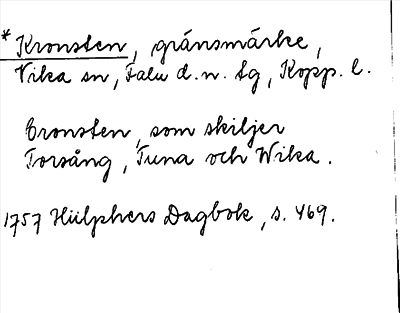 * Kronsten, gränsmärke,
Vika sn, Falu d.n. tg, Kopp. l.
Cronsten, som skiljer
Torsång, Tuna och Wika.
1757 Hülphers Dagbok, s. 469.